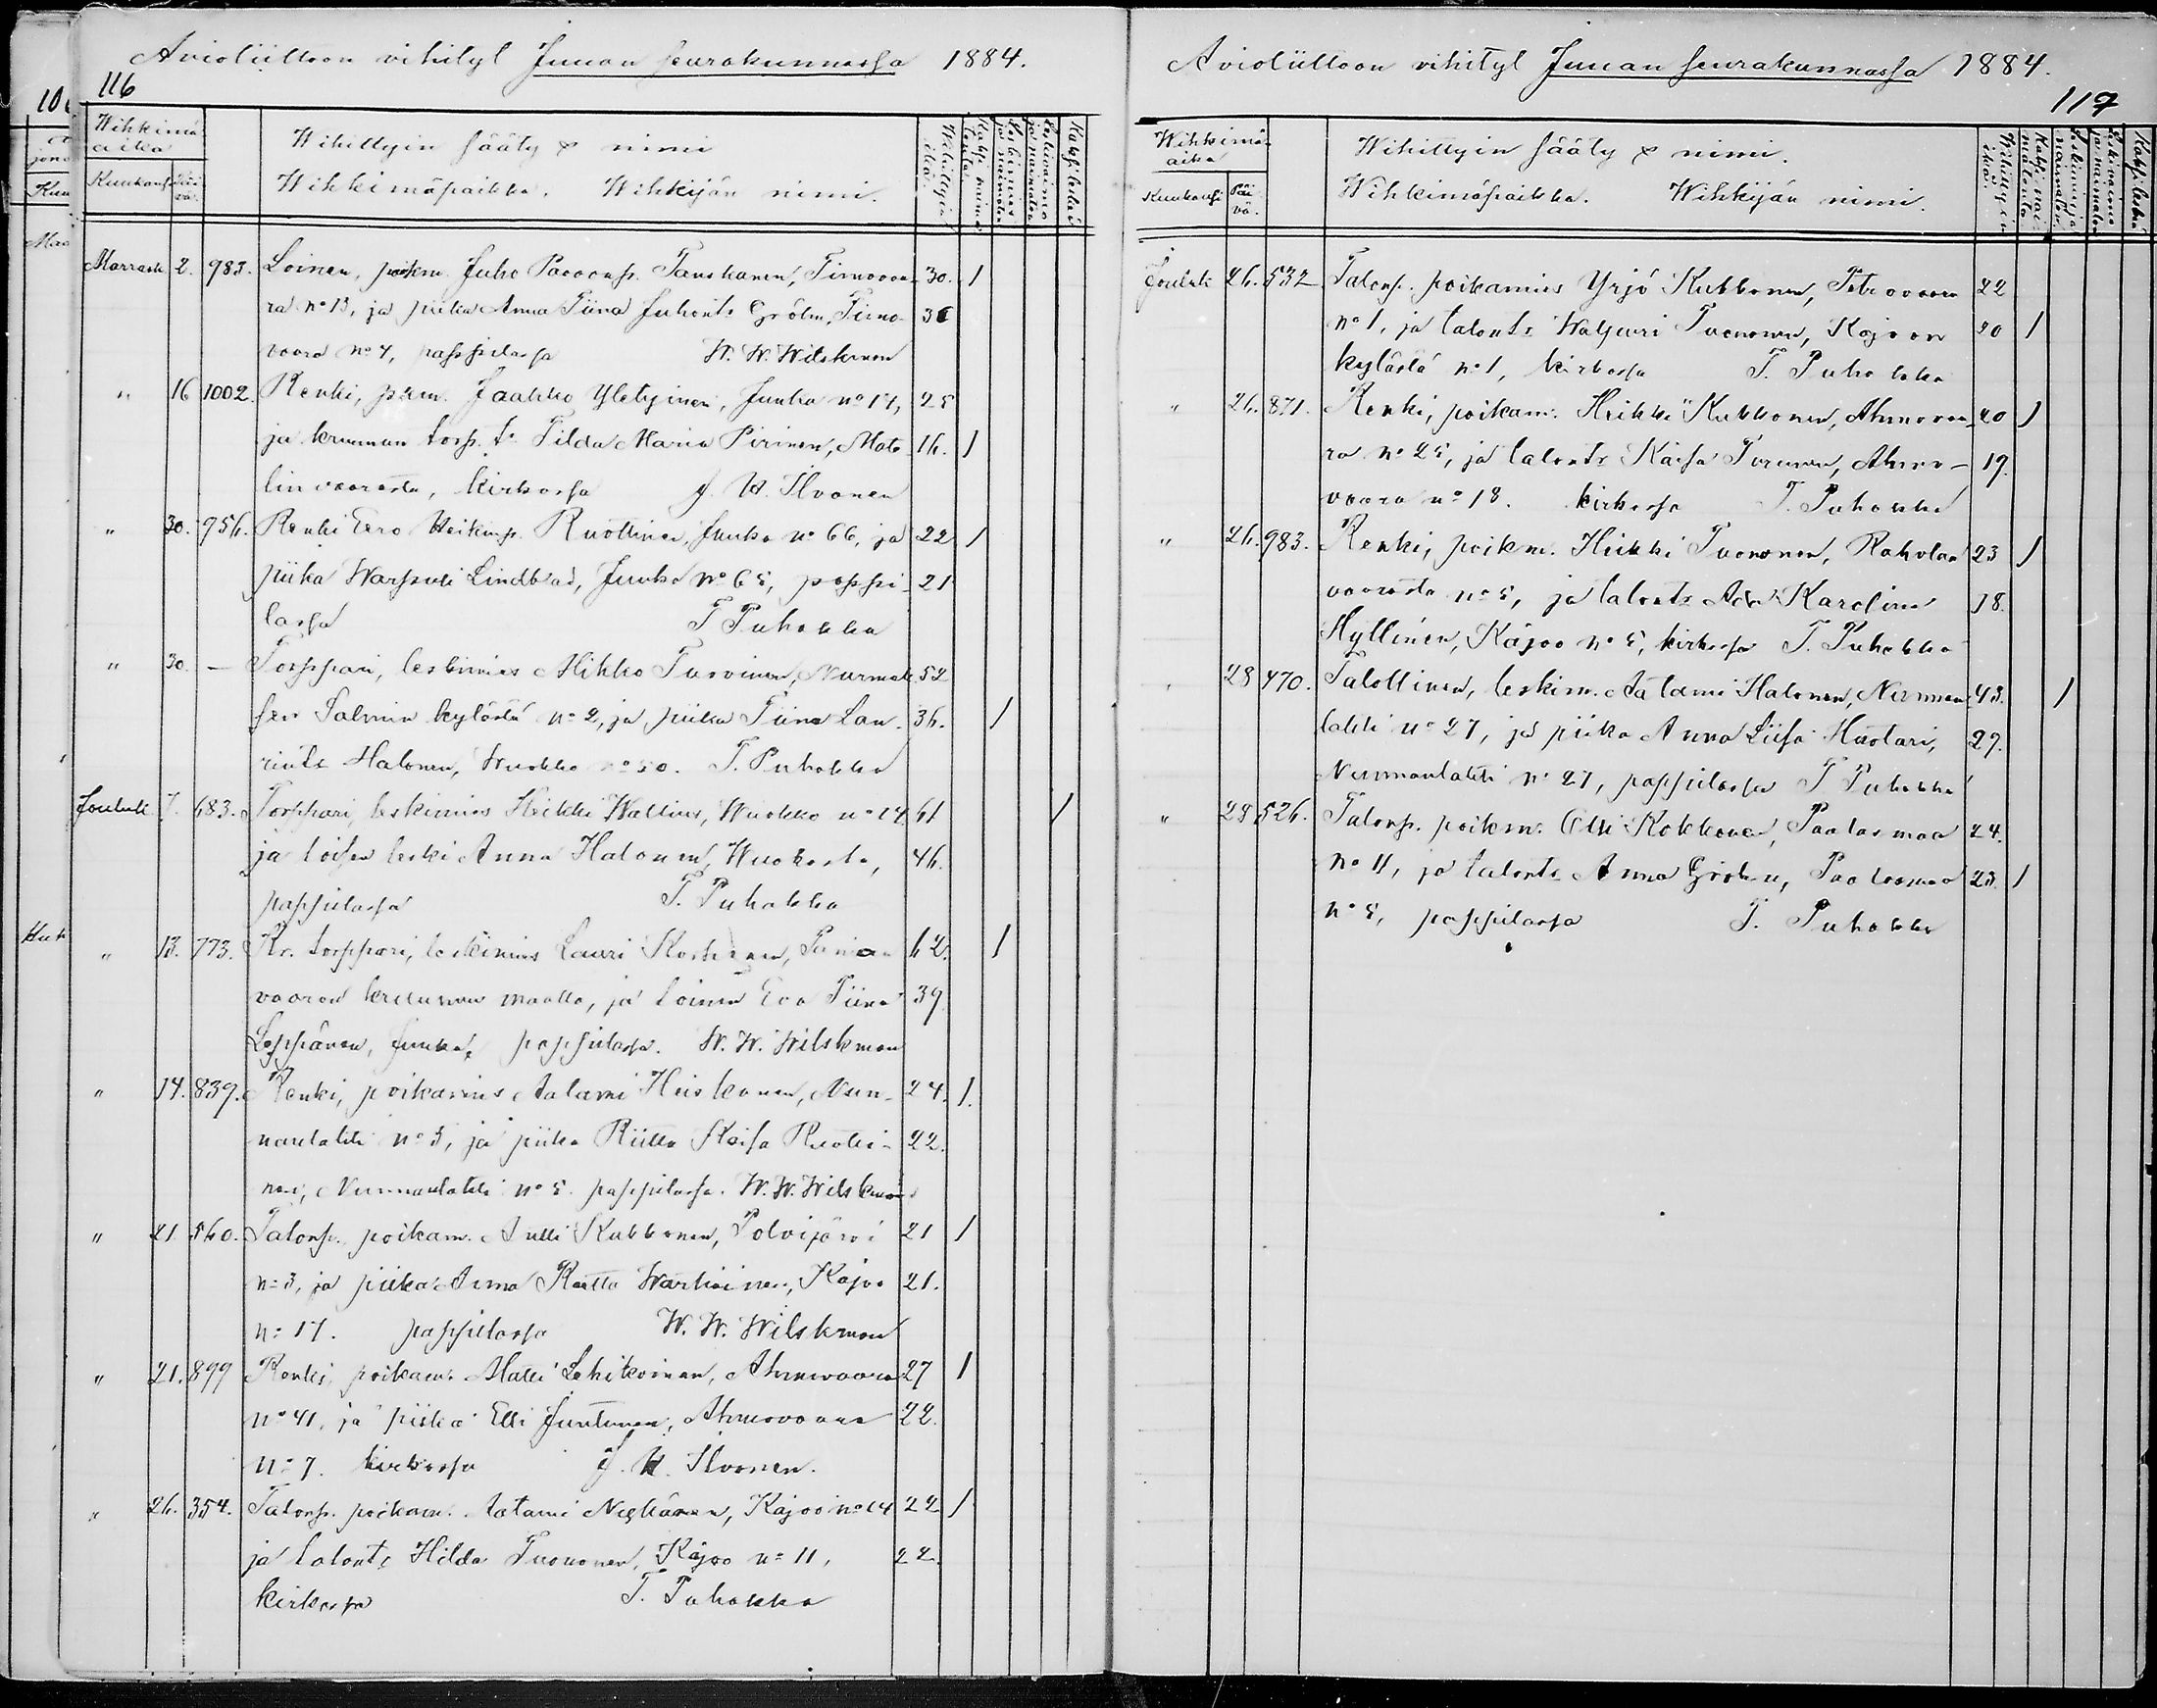 Avioliittoon vihityt Juuan seurakunnassa 1884.
116
Wihkimä aika
Kuukausi Päivä.
Wihittyin sääty & nimi
Wihkimäpaikka. Wihkijän nimi.
Wihittyin ikä.
Marrask. 2. 983. Loinen, poikm. Juho Paavonp. Tanskanen, Timovaa- 30. 1
ra no 13, ja piika Anna Tiina Juhont. Gröhn, Timo-
vaara no 4, pappilassa W. W. Wilskman
" 16 1002. Renki, pkm. Jaakko Yletyinen, Juuka no 14, 25
ja kruunun torp. t. Tilda Maria Pirinen, Mate- 16. 1
linvaarasta, kirkossa J. W. Ilvonen
" 30. 956. Renki Eero Heikinp. Ruottinen, Juuka no 66, ja 22 1
piika Warpuli Lindblad, Juuka no 65, pappi- 21
lassa T Puhakka
" 30. — Torppari, leskimies Mikko Turvinen, Nurmek- 52
sen Salmin kylästä no 2, ja piika Tiina Lau- 36. 1
rint. Halonen, Wuokko no 50. T. Puhakka
Jouluk. 7. 683. Torppari, leskimies Heikki Wallius, Wuokko no 24. 61 1
ja loisen leski Anna Halonen, Wuokosta, 46.
pappilassa T. Puhakka
" 13. 773. Kr. torppari, leskimies Lauri Korhonen, 62. 1
vaaran kruunun maalta, ja loinen Eva Tiina 39
Leppänen, Juuka, pappilassa. W. W. Wilskman
" 14. 839. Renki, poikamies Aatami Hiiskonen, Nun- 24. 1.
nanlahti no 5, ja piika Riitta Kaisa Ruotti- 22.
nen, Nunnanlahti no 5. pappilassa. W. W. Wilskman
" 21 560. Talonp. poikam. Antti Kukkonen, Polvijärvi 21 1
no 3, ja piika Anna Reetta Wartiainen, Kajoo 21.
no 17. pappilassa W. W. Wilskman
" 21. 899 Renki, poikam. Matti Lehikoinen, Ahmovaara 27 1
no 41, ja piika Elli Juntunen, Ahmovaara 22.
no 7. kirkossa J. W. Ilvonen.
" 26. 354. Talonp. poikam. Aatami Nevalainen, Kajoo no 14 22 1
ja talont. Hilda Tuononen, Kajoo no 11, 22.
kirkossa T. Puhakka
Avioliittoon vihityt Juuan seurakunnassa 1884.
117
Wihkimä-aika
Kuukausi Päivä.
Wihittyin sääty & nimi.
Wihkimäpaikka. Wihkijän nimi.
Wihittyin ikä.
Jouluk. 26. 532 Talonp. poikamies Yrjö Kukkonen, Petrovaara 22
no 1, ja talont. Walpuri Tuononen, Kajoon 20 1
kylästä no 1, kirkossa T. Puhakka
" 26. 871. Renki, poikam. Heikki Kukkonen, Ahmovaa- 20 1
ra no 25, ja talont. Kaisa Turunen, Ahmo- 19.
vaara no 18. kirkossa T. Puhakka
" 26. 983. Renki, poikm. Heikki Tuononen, Raholan 23 1
vaarasta no 5, ja talont. Ada Karolina 18.
Hyttinen, Kajoo no 5, kirkossa T. Puhakka
" 28 470. Talollinen, leskim. Aatami Halonen, Nunnan- 43. 1
lahti no 27, ja piika Anna Liisa Huotari, 27.
Nunnanlahti no 27, pappilassa T Puhakka
" 28 526. Talonp. poikm. Olli Kokkonen, Paalasmaa 24.
no 11, ja talont. Anna Gröhn, Paalasmaa 23. 1
no 5, pappilassa T. Puhakka